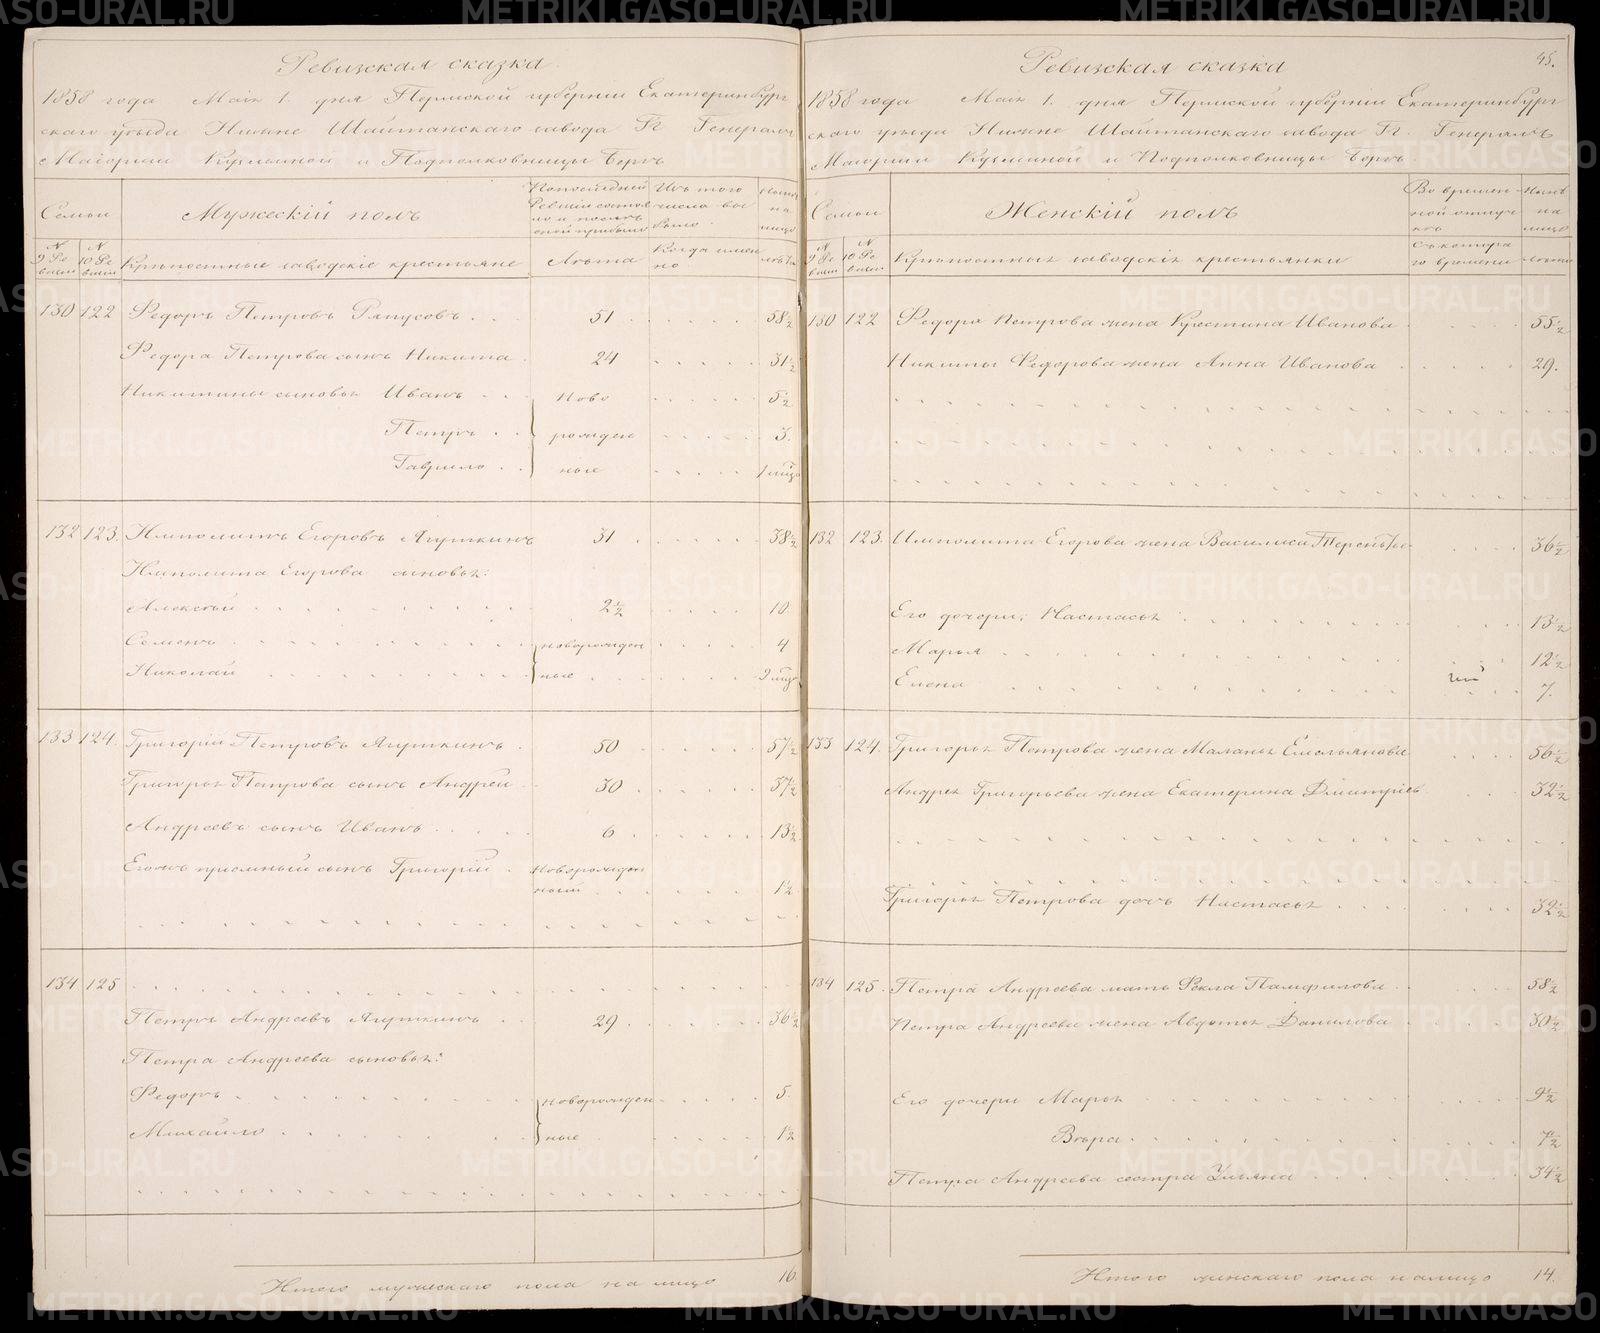 Ревизская сказка
1858 года Маiя 1. дня Пермской губернiи Екатеринбург
скаго уѣзда Нижне Шайтанскаго завода Гг. Генералъ
Маiорши Кузьминой и Подполковницы Бергъ
Семьи
Мужескiй полъ
Попослѣдней Ревизiи состояло и послѣ оной прибыло
Изъ того числа выбыло
Нынѣ на лицо
N 9 Ревизiи
N 10 Ревизiи
Крѣпостные заводскiе крестьяне
Лѣта
Когда именно
лѣта
130 122 Федоръ Петровъ Ряпусовъ 51 58½
Федора Петрова сынъ Никита 24 31½
Никитины сыновья Иванъ ново 5½
Петръ рожден 3.
Гаврило ные 1 мѣц
132 123. Ипполитъ Егоровъ Ягуткинъ 31 38½
Ипполита Егорова сыновья:
Алексѣй 2½ 10.
Семенъ новорожден 4
Николай ные 9 мѣц
133 124. Григорiй Петровъ Ягуткинъ 50 57½
Григорья Петрова сынъ Андрей 30 37½
Андреевъ сынъ Иванъ 6 13½
Егожъ прiемный сынъ Григорiй Новорожден
ный 1½
134 125
Петръ Андреевъ Ягуткинъ 29 36½
Петра Андреева сыновья:
Федоръ новорожден 5.
Михайло ные 1½
Итого мужескаго пола на лицо 16.
45.
Ревизская сказка
1858 года Маiя 1. дня Пермской губернiи Екатеринбург
скаго уѣзда Нижне Шайтанскаго завода Гг. Генералъ
Маiорши Кузьминой и Подполковницы Бергъ.
Семьи
Женскiй полъ
Во временной отлучкѣ
Нынѣ на лицо
N 9 Ревизiи
N 10 Ревизiи
Крѣпостныя заводскiя крестьянки
Съ котораго времени
лѣта
130 122 Федора Петрова жена Крестина Иванова 55½
Никиты Федорова жена Анна Иванова 29.
132 123. Ипполита Егорова жена Василиса Теренть 36½
Его дочери: Настасья 13½
Марья 12½
Елена 7.
133 124. Григорья Петрова жена Маланья Емельянова 56½
Андрея Григорьева жена Екатерина Дмитрiев 32½
Григорья Петрова дочь Настасья 32½
134 125. Петра Андреева мать Фекла Памфилова 58½
Петра Андреева жена Авдотья Данилова 30½
Его дочери Марья 9½
Вѣра 7½
Петра Андреева сестра Ульяна 34½
Итого женскаго пола налицо 14.
METRIKI.GASO-URAL.RU